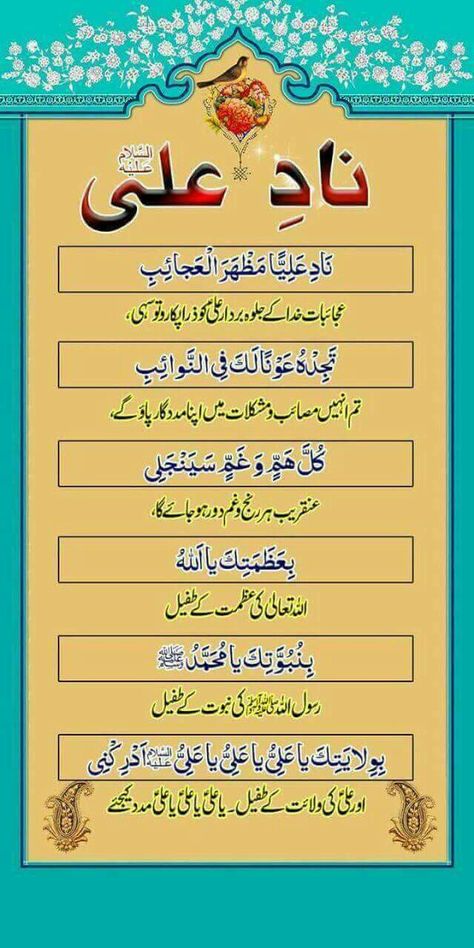 نادِ علی علیہ السلام
نَادِ عَلِيًّا مَظْهَرَ الْعَجَائِبِ
عجائبات خدا کے جلوہ بردار علیؑ کو ذرا پکارو تو سہی،
تَجِدْهُ عَوْنًا لَكَ فِي النَّوَائِبِ
تم انہیں مصائب و مشکلات میں اپنا مددگار پاؤ گے،
كُلُّ هَمٍّ وَ غَمٍّ سَيَنْجَلِي
عنقریب ہر رنج و غم دور ہو جائے گا،
بِعَظَمَتِكَ يَا اَللهُ
اللہ تعالیٰ کی عظمت کے طفیل
بِنُبُوَّتِكَ يَا مُحَمَّدُ ﷺ
رسول اللہ ﷺ کی نبوت کے طفیل
بِوِلَايَتِكَ يَا عَلِيُّ يَا عَلِيُّ يَا عَلِيُّ علیہ السلام اَدْرِكْنِي
اور علیؑ کی ولائت کے طفیل۔ یا علیؑ یا علیؑ یا علیؑ مدد کیجئے